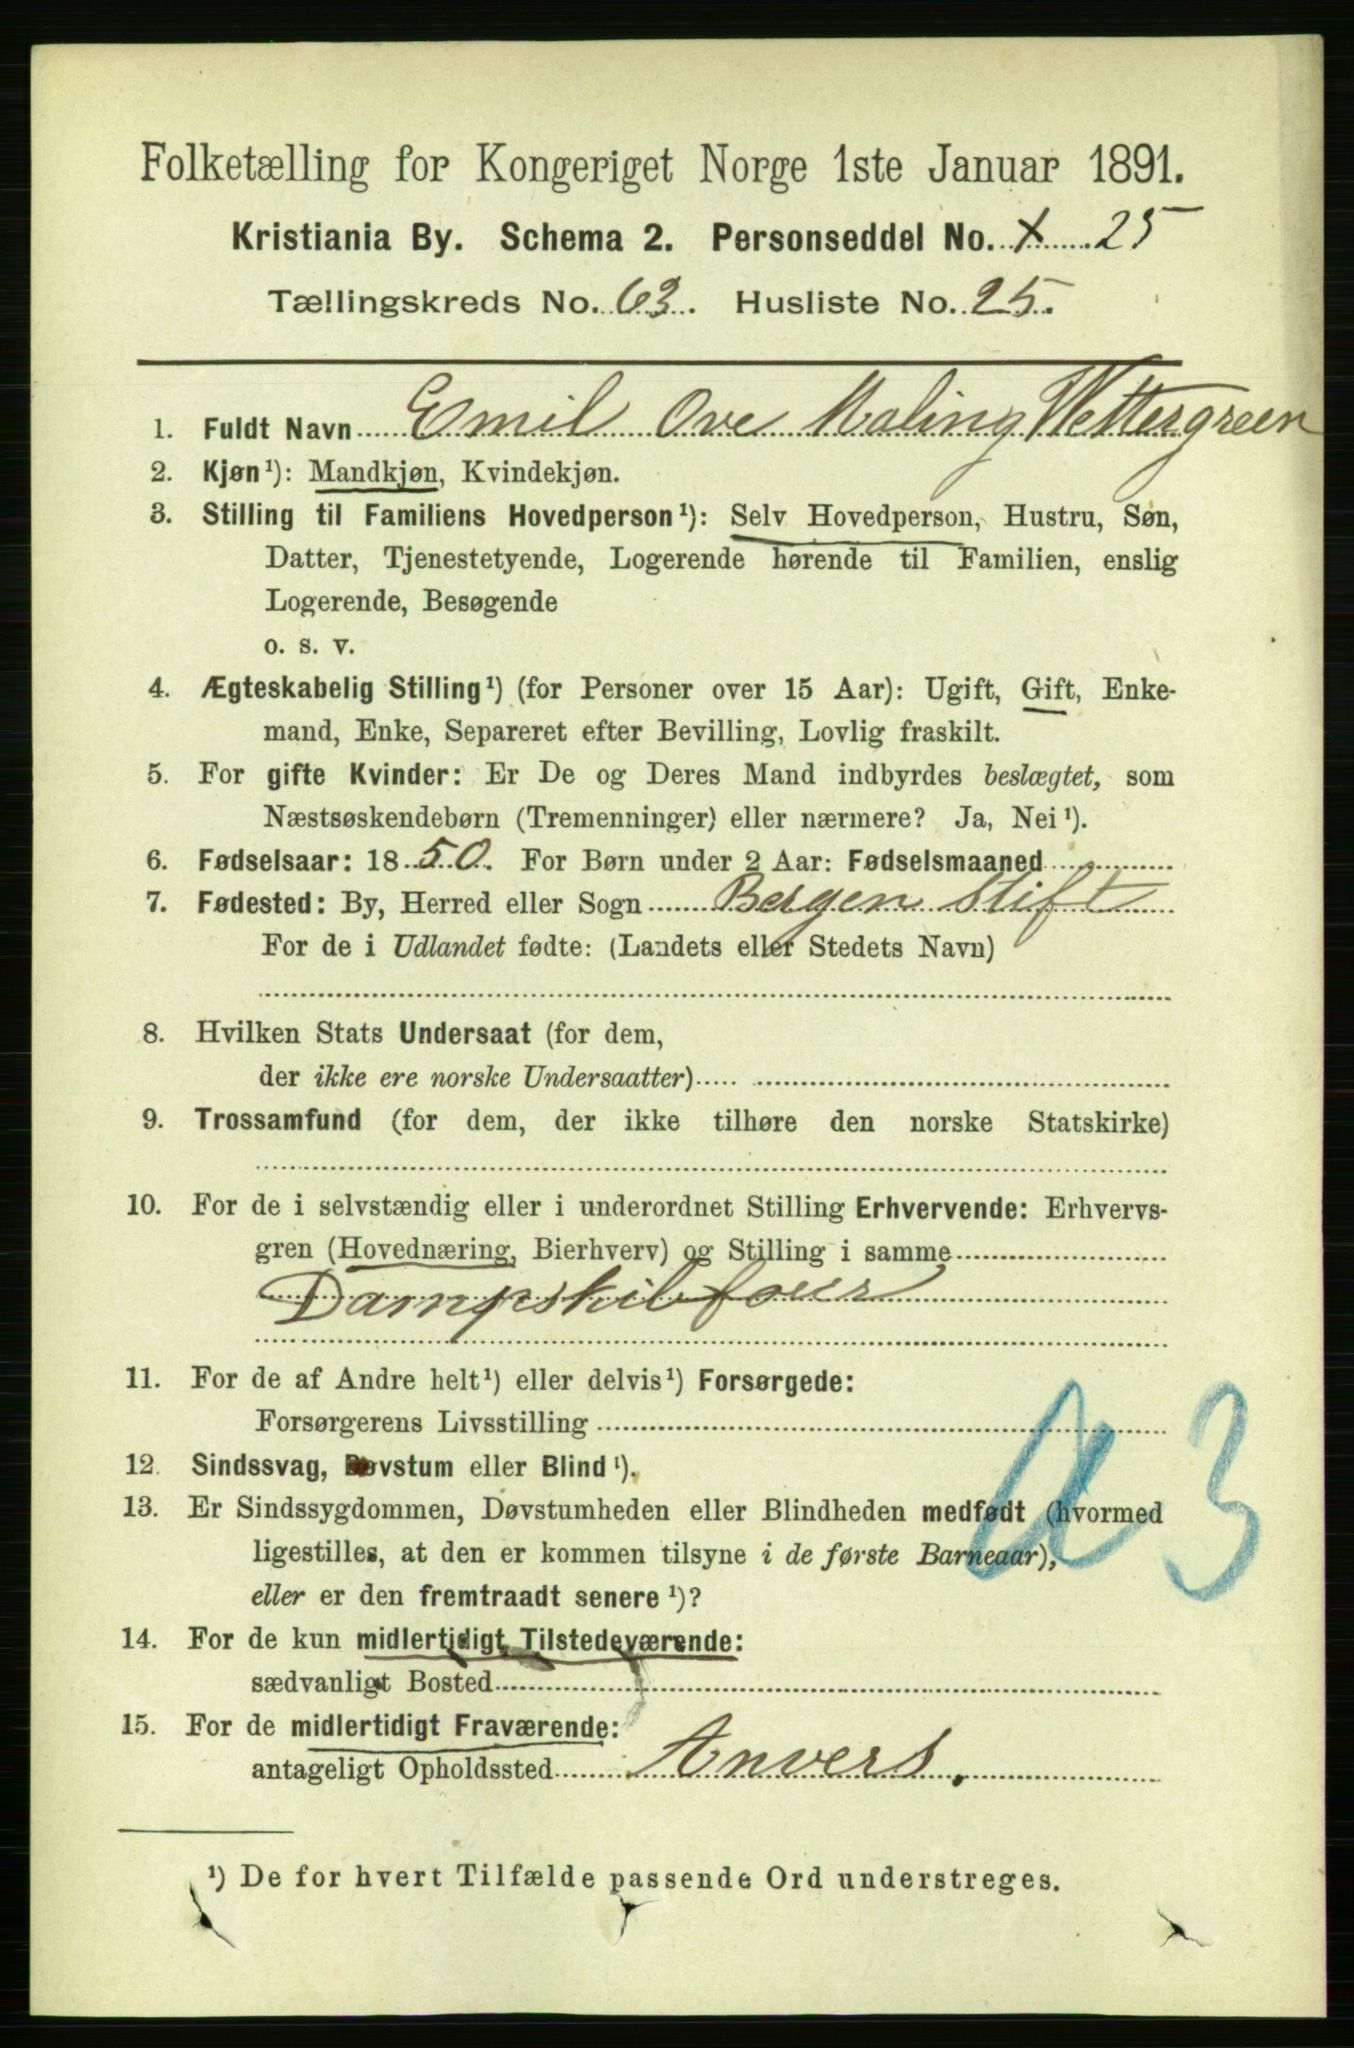 Folketælling for Kongeriget Norge 1ste Januar 1891.
Kristiania By. Schema 2. Personseddel No. x 25
Tællingskreds No. 63. Husliste No. 25.
1. Fuldt Navn Emil Ove Maling Wettergreen
2. Kjøn¹): Mandkjøn, Kvindekjøn.
3. Stilling til Familiens Hovedperson¹): Selv Hovedperson, Hustru, Søn,
Datter, Tjenestetyende, Logerende hørende til Familien, enslig
Logerende, Besøgende
o. s. v.
4. Ægteskabelig Stilling¹) (for Personer over 15 Aar): Ugift, Gift, Enke-
mand, Enke, Separeret efter Bevilling, Lovlig fraskilt.
5. For gifte Kvinder: Er De og Deres Mand indbyrdes beslægtet, som
Næstsøskendebørn (Tremenninger) eller nærmere? Ja, Nei¹).
6. Fødselsaar: 1850. For Børn under 2 Aar: Fødselsmaaned
7. Fødested: By, Herred eller Sogn Bergen Stift
For de i Udlandet fødte: (Landets eller Stedets Navn)
8. Hvilken Stats Undersaat (for dem,
der ikke ere norske Undersaatter)
9. Trossamfund (for dem, der ikke tilhøre den norske Statskirke)
10. For de i selvstændig eller i underordnet Stilling Erhvervende: Erhvervs-
gren (Hovednæring, Bierhverv) og Stilling i samme
11. For de af Andre helt¹) eller delvis¹) Forsørgede:
Forsørgerens Livsstilling
12. Sindssvag, Døvstum eller Blind¹).
13. Er Sindssygdommen, Døvstumheden eller Blindheden medfødt (hvormed
ligestilles, at den er kommen tilsyne i de første Barneaar),
eller er den fremtraadt senere¹)?
14. For de kun midlertidigt Tilstedeværende:
sædvanligt Bosted
15. For de midlertidigt Fraværende:
antageligt Opholdssted Anvers.
¹) De for hvert Tilfælde passende Ord understreges.